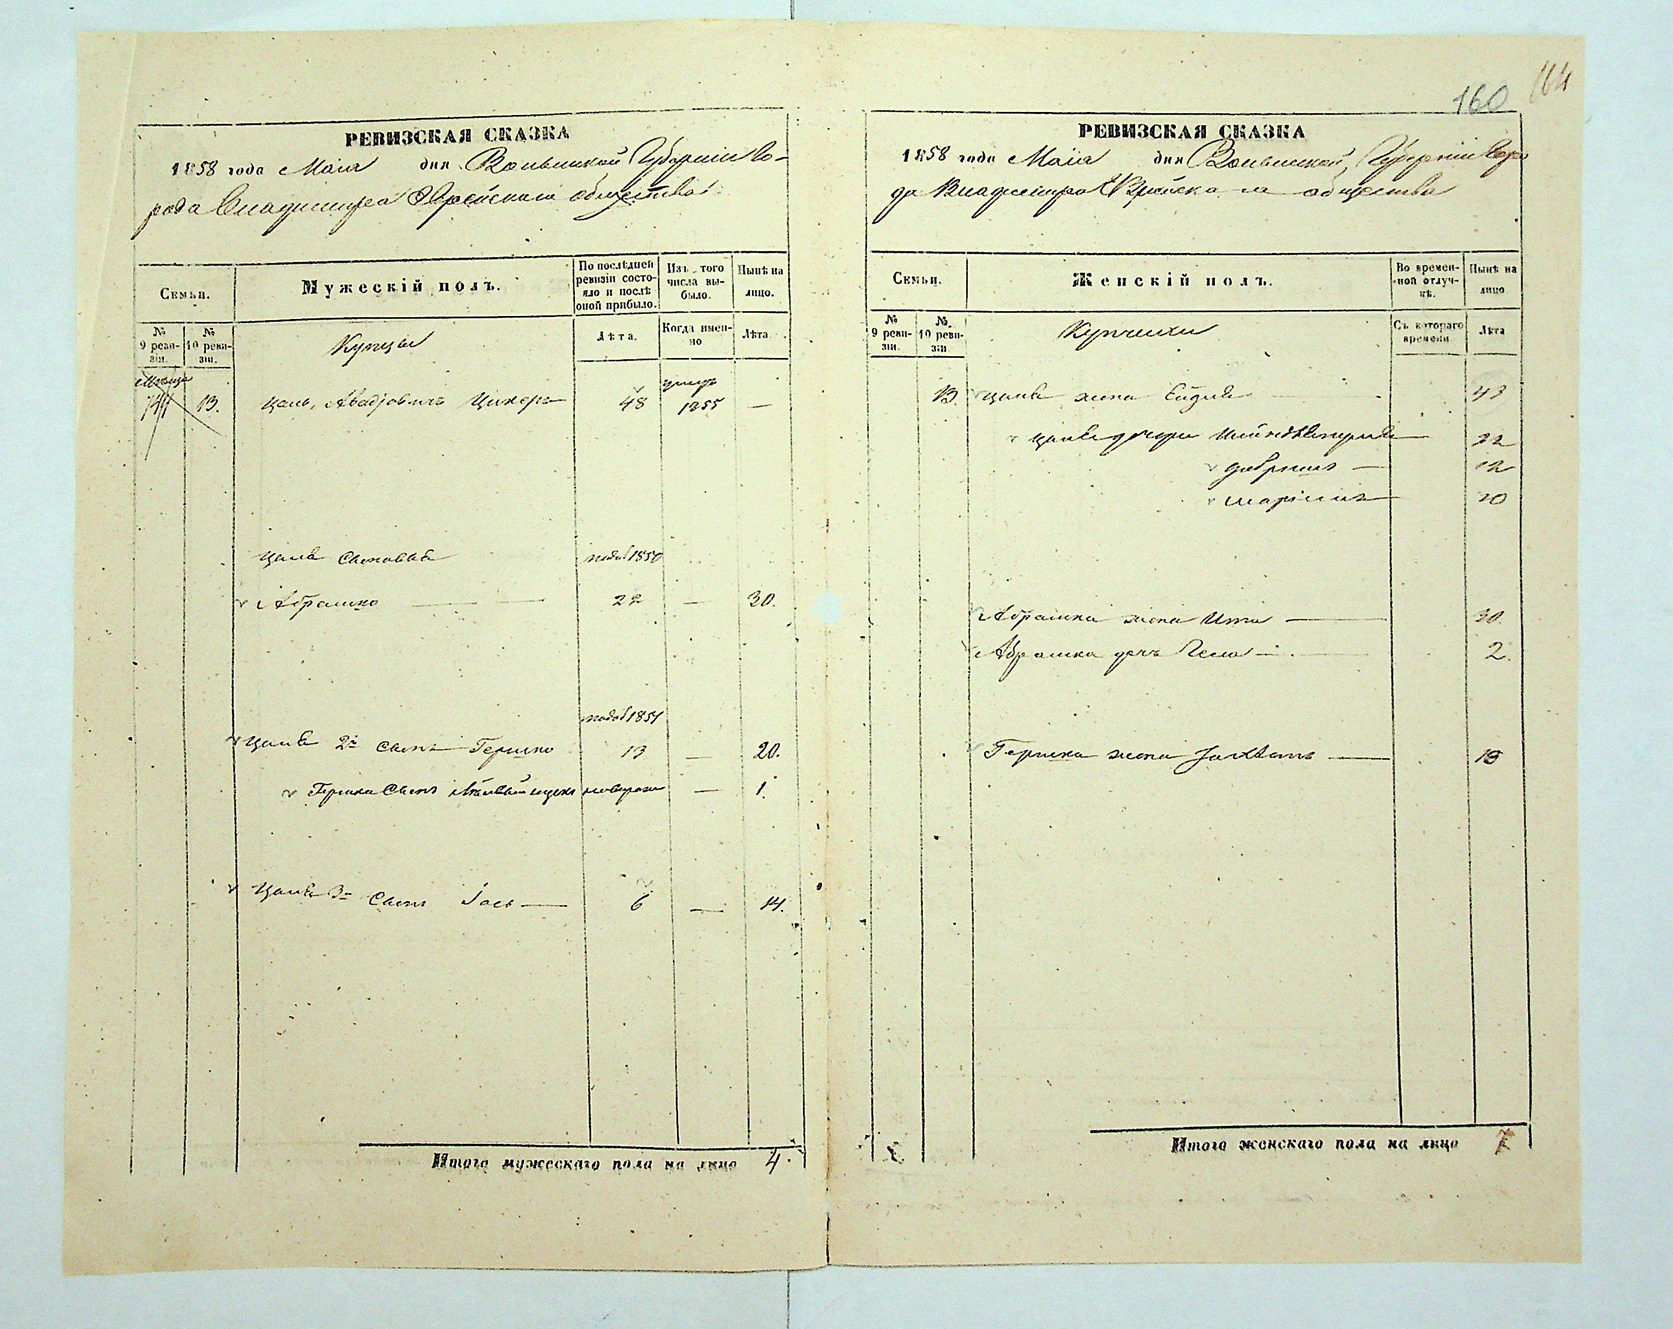 160
164
РЕВИЗСКАЯ СКАЗКА
1858 года Маія дня Волынской Губерніи Го-
рода Владимира Еврейскаго общества
Семьи.
Мужескій полъ.
По послѣдней ревизіи состояло и послѣ оной прибыло.
Изъ того числа выбыло.
Нынѣ на лицо.
№ 9 ревизіи.
№ 10 ревизіи.
Купцы
Лѣта.
Когда именно
Лѣта.
умеръ
13. Цаль Авадіовичъ Цикеръ 48 1855 —
Цаля сыновья 1850
Абрамко 22 — 30.
1851
Цаля 2й сынъ Гершко 13 — 20.
Гершка сынъ — 1.
Цаля 3й сынъ Іось 6 — 14.
Итого мужескаго пола на лицо 4.
РЕВИЗСКАЯ СКАЗКА
1858 года Маія дня Волынской Губерніи Горо
да Владимира Еврейска го общества
Семьи.
Женскій полъ.
Во временной отлучкѣ.
Нынѣ на лицо.
№ 9 ревизіи.
№ 10 ревизіи
Купчихи
Съ котораго времени
Лѣта
13. Цаля жена Ейдля 43
Цаля дочери 22
12
10
Абрамка жена Ита — 30.
Абрамка дочь — 2.
Гершка жена — 19
Итого женскаго пола на лицо 7